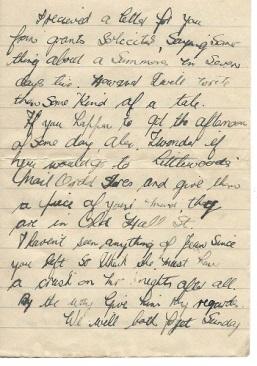 I received a letter for you
from grants Solicitors, Saying Some
thing about a Summons in Seven
days time. However I will write
them Some Kind of a tale.
If you happen to get the afternoon
of some day Alex, I wonder if
you would go to Littlewoods
Mail Order Stores and give them
a piece of your mind they
are in Old Hall St
I haven't seen anything of Jean Since
you left So I think she must have
a crush on her nights after all.
By the way Give him my regards.
We will both forget Sunday